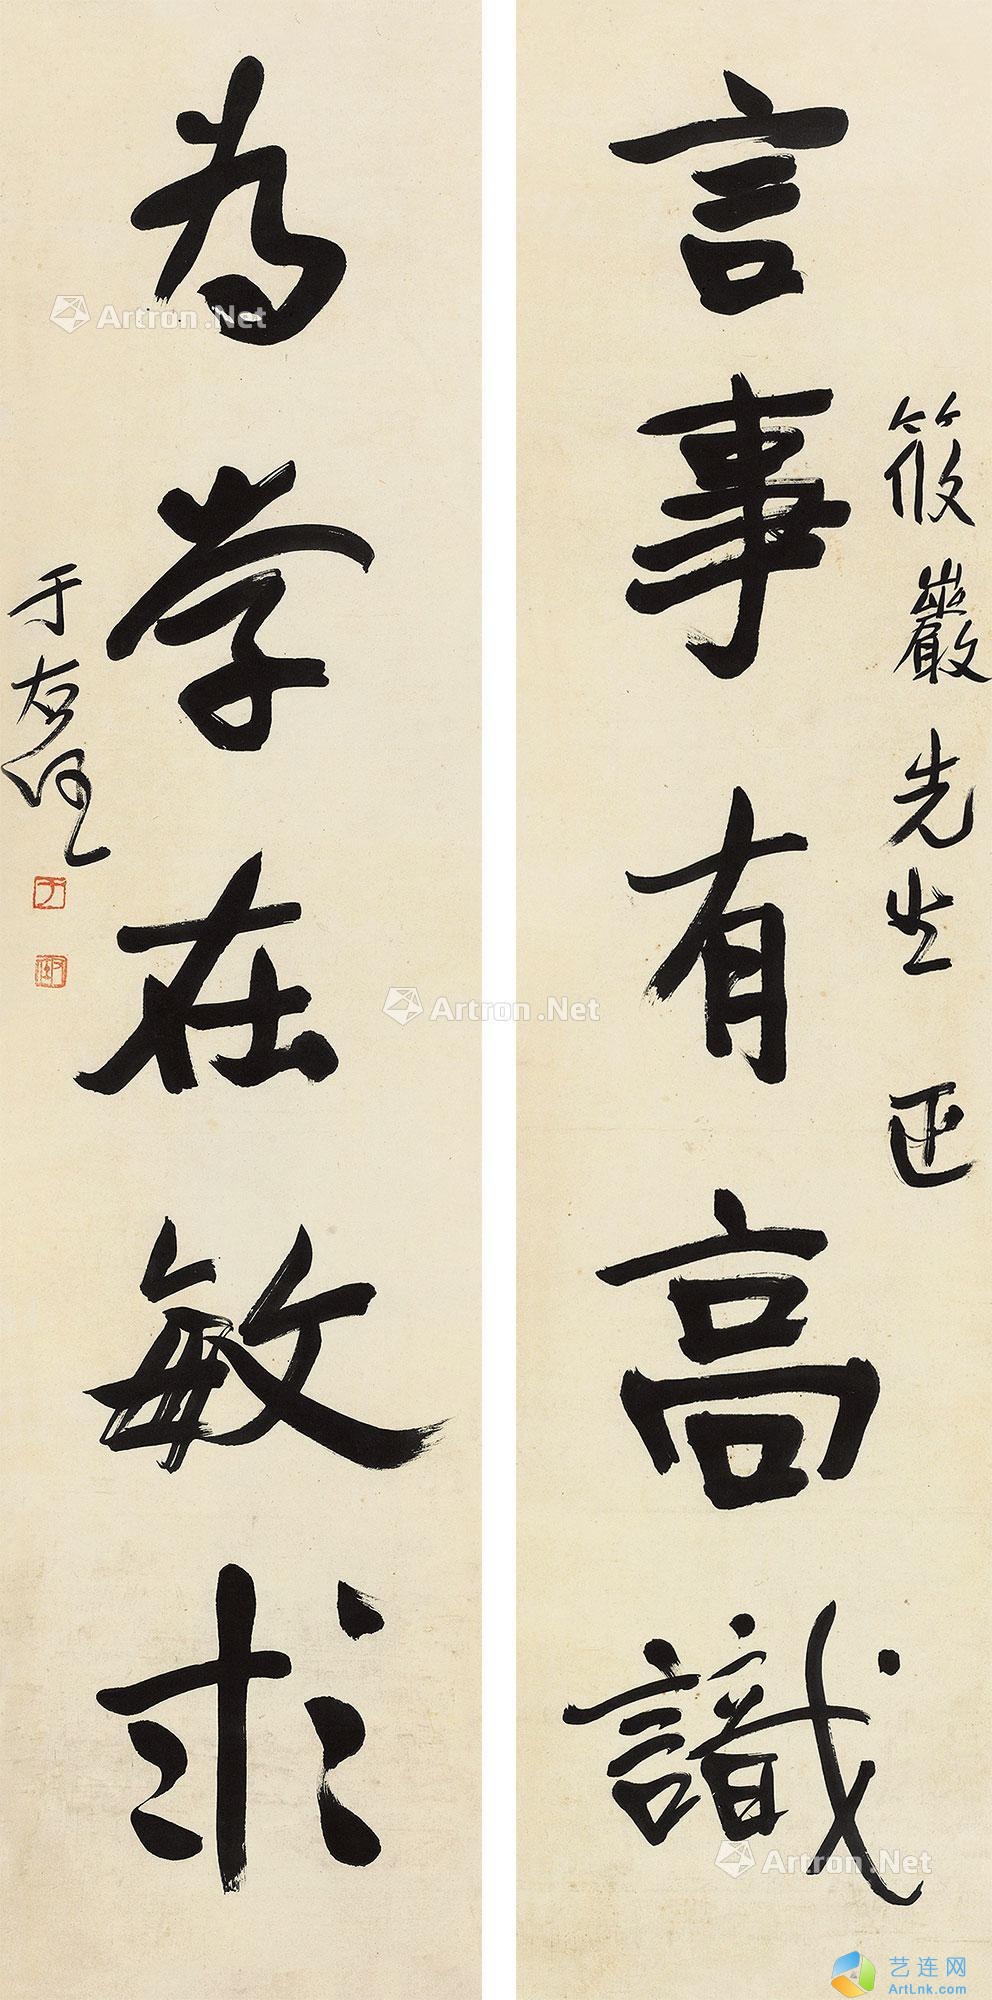 筱巖先生 正
言事有高識
为学在敏求
于右任
Artron.Net
Artron.Net
Artron.Net
艺连网
ArtLnk.com